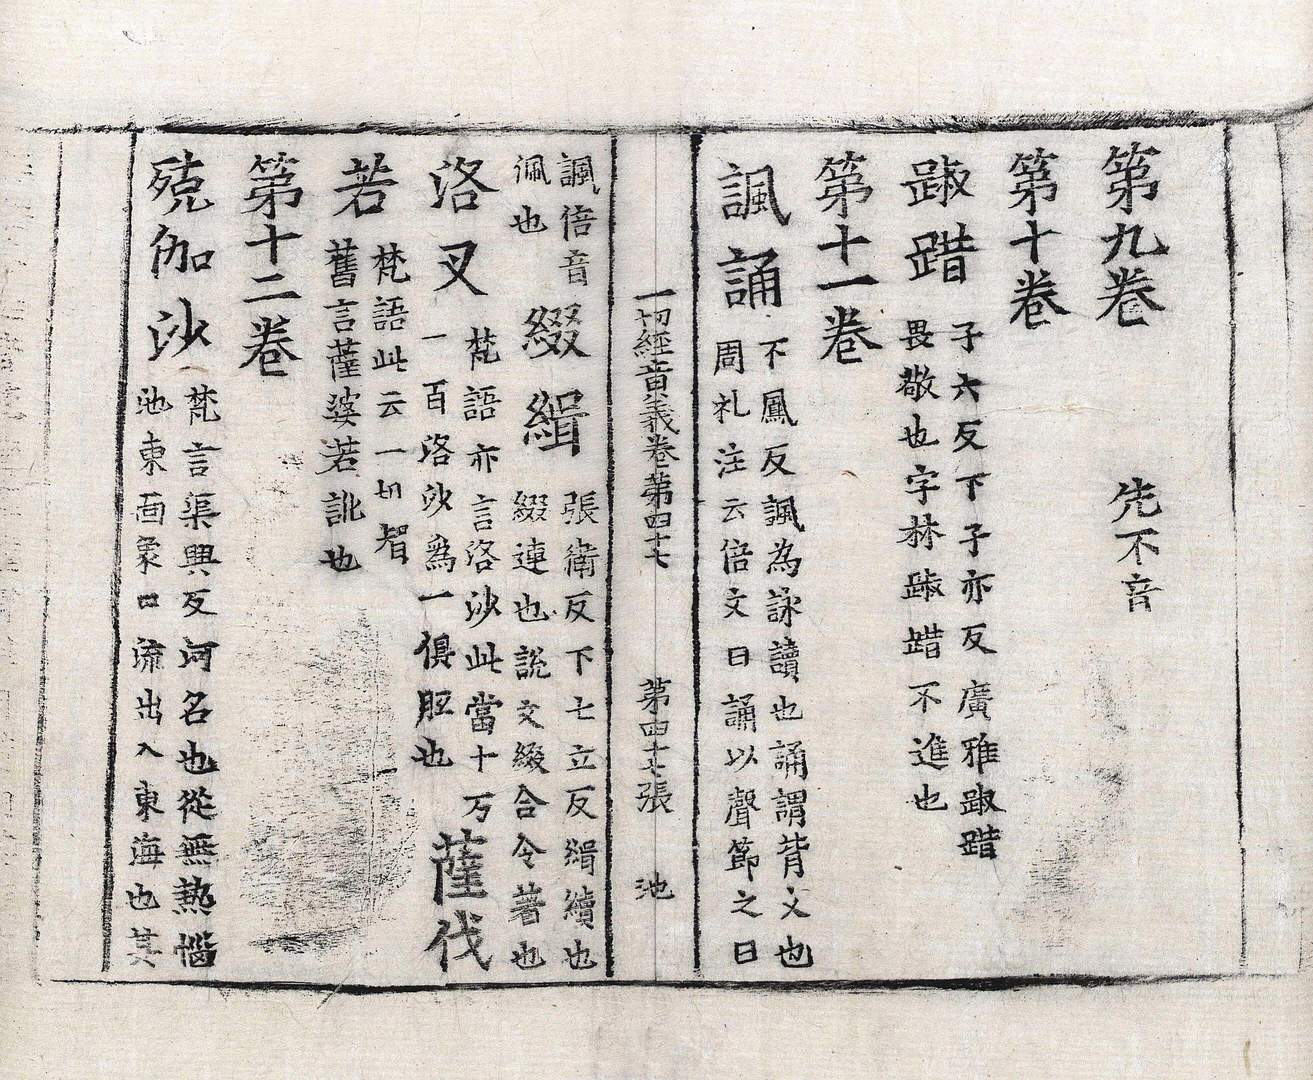 第九卷 先不音
第十卷
踧踖 子六反下子亦反廣雅踧踖
畏敬也字林踧踖不進也
第十一卷
諷誦 不鳳反諷為詠讀也誦謂背文也
周礼注云倍文曰誦以聲節之曰
一切經音義卷第四十七 第四十七張 池
諷倍音
佩也
綴緝 張衛反下七立反緝續也
綴連也說文綴合令著也
洛叉 梵語亦言洛沙此當十万
一百洛沙為一俱胝也
薩伐
若 梵語此云一切智
舊言薩婆若訛也
第十二卷
殑伽沙 梵言渠興反河名也從無熱惱
池東面象口流出入東海也其